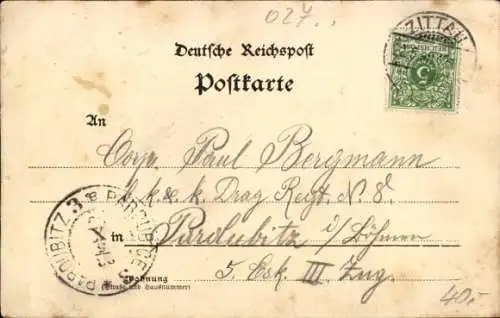 027..
ZITTAU
Deutsche Reichspost
Postkarte
An
Corp. Paul Bergmann
k. k. & k. Drag Regt. N. 8.
in Pardubitz i/Böhmen
5. Esk. III. Zug.
Wohnung
(Straße und Hausnummer)
PARDUBITZ 3 * PARDUBICE 3 *
40.-